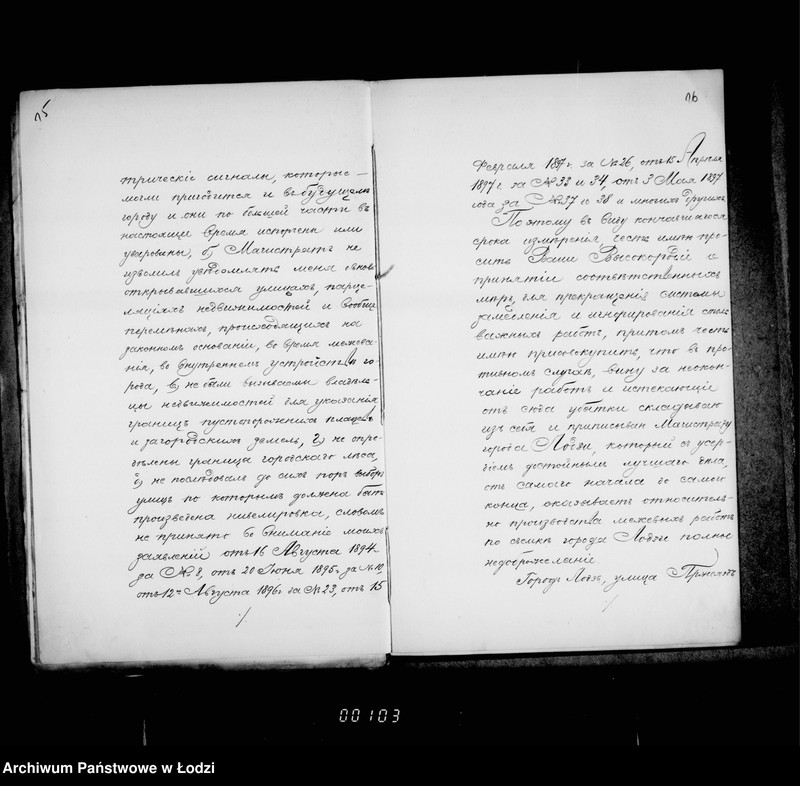 75
трическіе сигналы, которые —
могли пригодится и въ будущемъ
городу и они по большей части въ
настоящее время испорчены или
уворованы, б) Магистратъ не
изволилъ уведомлять меня о вновь
открывавшихся улицахъ, парце-
ляціяхъ недвижимостей и вообще
перемѣнахъ, происходящихъ на
законномъ основаніи, во время межева-
нія, во внутреннемъ устройствѣ го-
рода, в) не были вызываемы владѣль-
цы недвижимостей для указанія
границъ пустопорожнихъ плацовъ
и загородскихъ земель, г) не опре-
дѣлены граница городскаго лѣса,
д) не послѣдовалъ до сихъ поръ выборъ
улицъ по которымъ должна быть
произведена нивелировка, словомъ
не принято во вниманіе моихъ
заявленій отъ 16 Августа 1894 г.
за № 8, отъ 20 Іюня 1895 г. за № 10
отъ 12го Августа 1896 г за № 23, отъ 15
./.
76
Февраля 1897 г. за № 26, отъ 15 Апреля
1897 г. за № 33 и 34, отъ 3 Мая 1897
года за № 37 и 38 и многихъ другихъ.
Поэтому въ виду кончающагося
срока измѣренія честь имѣю про-
сить Ваше Высокородіе о
принятіи соответственныхъ
мѣръ, для прекращенія системы
замедленія и игнорированія столь
важныхъ работъ, притомъ честь
имѣю присовокупить, что въ про-
тивномъ случаѣ, вину за неокон-
чаніе работъ и истекающіе
отъ сюда убытки складываю
изъ себя и приписываю Магистрату
города Лодзи, который съ усер-
діемъ достойнымъ лучшаго дѣла,
отъ самаго начала до самаго
конца, оказываетъ относитель-
но производства межевыхъ работъ
по съемкѣ города Лодзи полное
недоброжеланіе
Городъ Лодзь, улица
./.
00103
Archiwum Państwowe w Łodzi